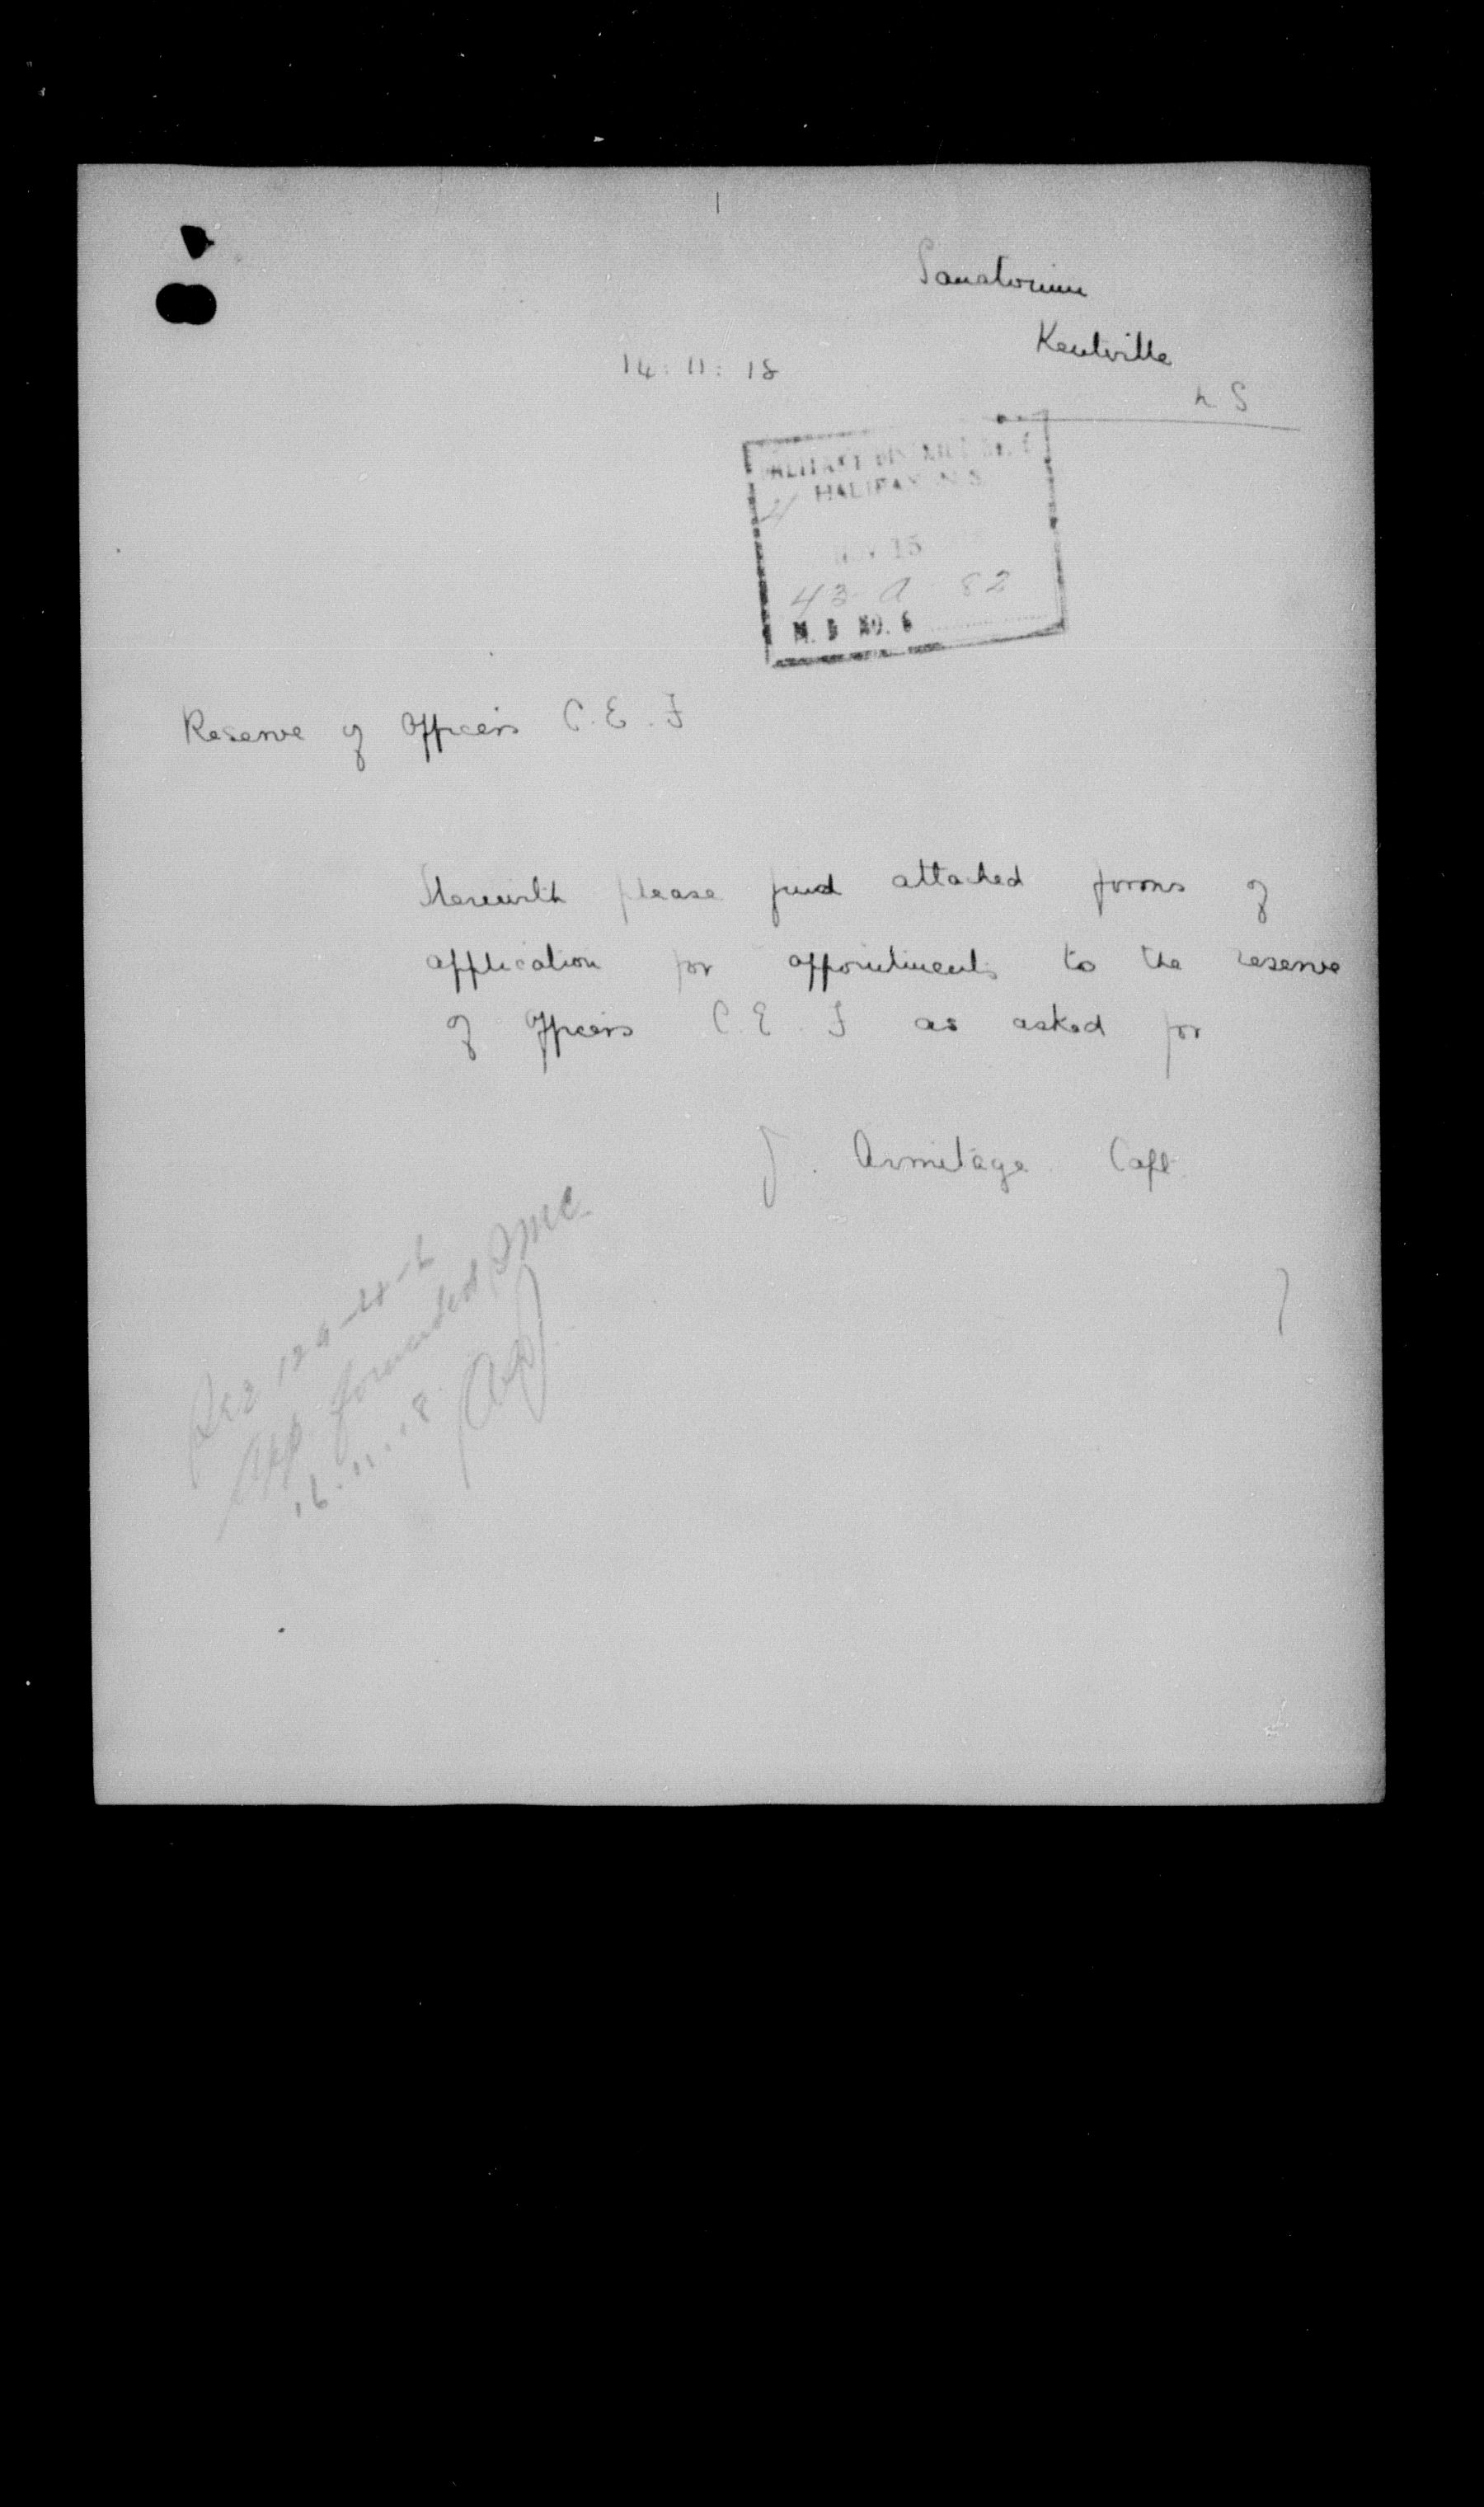 Sanatorium
Kentville
N S
14 : 11 : 18
MILITARY DISTRICT No. 6
HALIFAX N.S.
NOV 15
43 A 82
M. D NO. 6
Reserve of Officers C. E. F
Herewith please find attached forms of
application for appointments to the reserve
of Officers C. E. F as asked for
J. Armitage Capt.
App. forwarded
16.11.18.